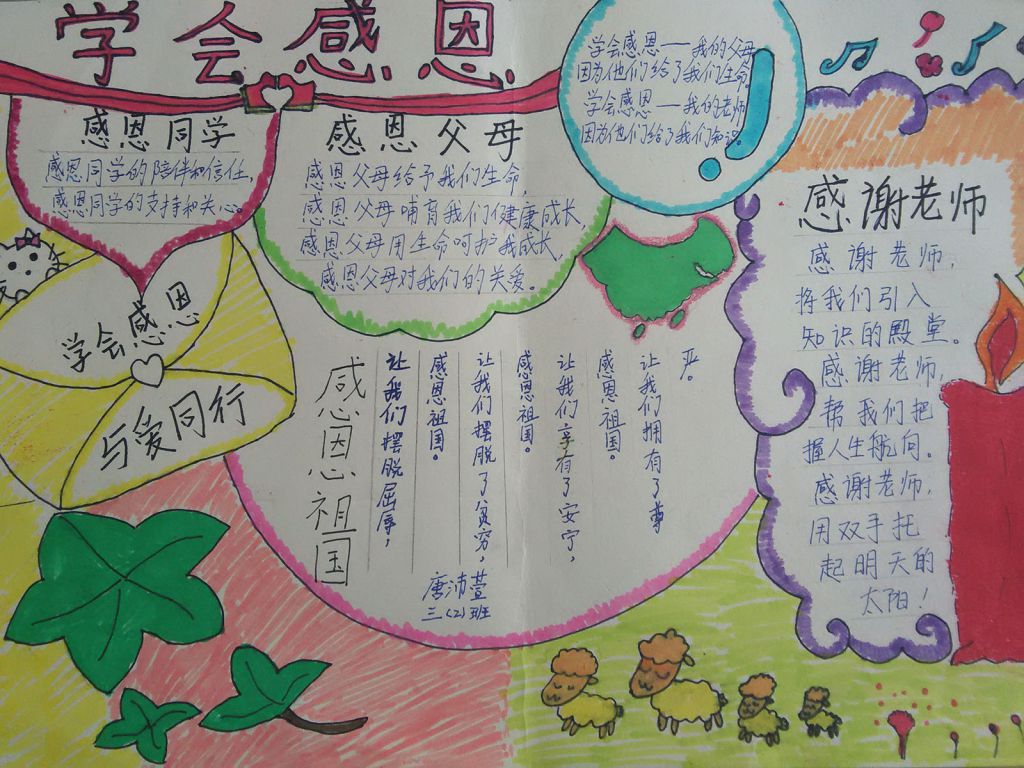 学会感恩
感恩同学
感恩同学的陪伴和信任,
感恩同学的支持和关心。
感恩父母
感恩父母给予我们生命,
感恩父母哺育我们健康成长,
感恩父母用生命呵护我成长,
感恩父母对我们的关爱。
学会感恩——我的父母
因为他们给了我们生命。
学会感恩——我的老师
因为他们给了我们知识。
学会感恩
与爱同行
感恩祖国
让我们摆脱屈辱,
感恩祖国。
让我们摆脱了贫穷,
感恩祖国。
让我们享有了安宁,
感恩祖国。
让我们拥有了尊
严。
唐沛萱
三(2)班
感谢老师
感谢老师,
将我们引入
知识的殿堂。
感谢老师,
帮我们把
握人生航向。
感谢老师,
用双手托
起明天的
太阳!